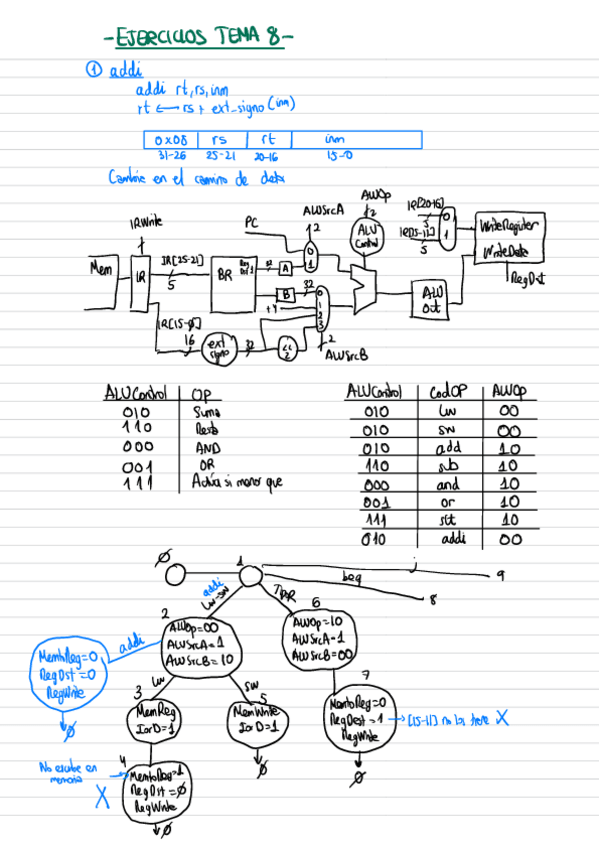 -EJERCICIOS TEMA 8-
① addi
addi rt, rs, inm
rt ← rs + ext_signo (inm)
0x08 rs rt inm
31-26 25-21 20-16 15-0
Cambie en el camino de data
ALUOp
IR[20-16]
ALUSrcA
2
2
5
0
IRWrite
PC
ALU Control
IR[15-11]
1
WriteRegister
5
WriteData
Mem
IR
IR[25-21]
5
BR
Reg
32
A
0
1
RegDst
B
32
0
+4
1
2
3
ALU Out
IR[15-0]
16
ext signo
32
<<2
2
ALUSrcB
ALUControl OP
010 Suma
110 Resta
000 AND
001 OR
111 Activa si menor que
ALUControl CodOP ALUOp
010 lw 00
010 sw 00
010 add 10
110 sub 10
000 and 10
001 or 10
111 slt 10
010 addi 00
0
1
j
9
beq
8
addi
lw-sw
TIPOR
2
ALUOp=00
ALUSrcA=1
ALUSrcB=10
6
ALUOp=10
ALUSrcA=1
ALUSrcB=00
addi
MemtoReg=0
RegDst=0
RegWrite
0
lw
sw
3
MemReg
IorD=1
5
MemWrite
IorD=1
0
7
MemtoReg=0
RegDest=1 → [15-11] no los tiene X
RegWrite
0
4
No escribe en memoria
X
MemtoReg=1
RegDst=0
RegWrite
0